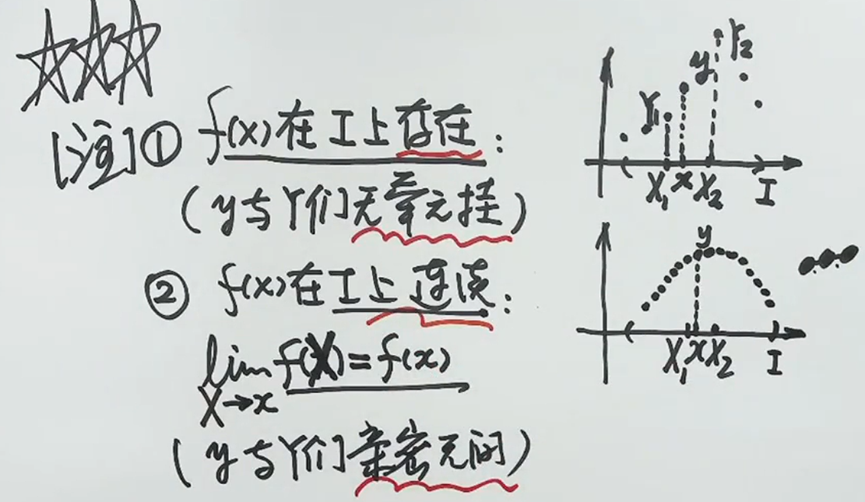 [注]① f(x)在I上存在:
(y与Y们无牵无挂)
② f(x)在I上连续:
lim f(X)=f(x)
X→x
(y与Y们亲密无间)
Y₁ y Y₂
X₁ x X₂ I
y
X₁ x X₂ I